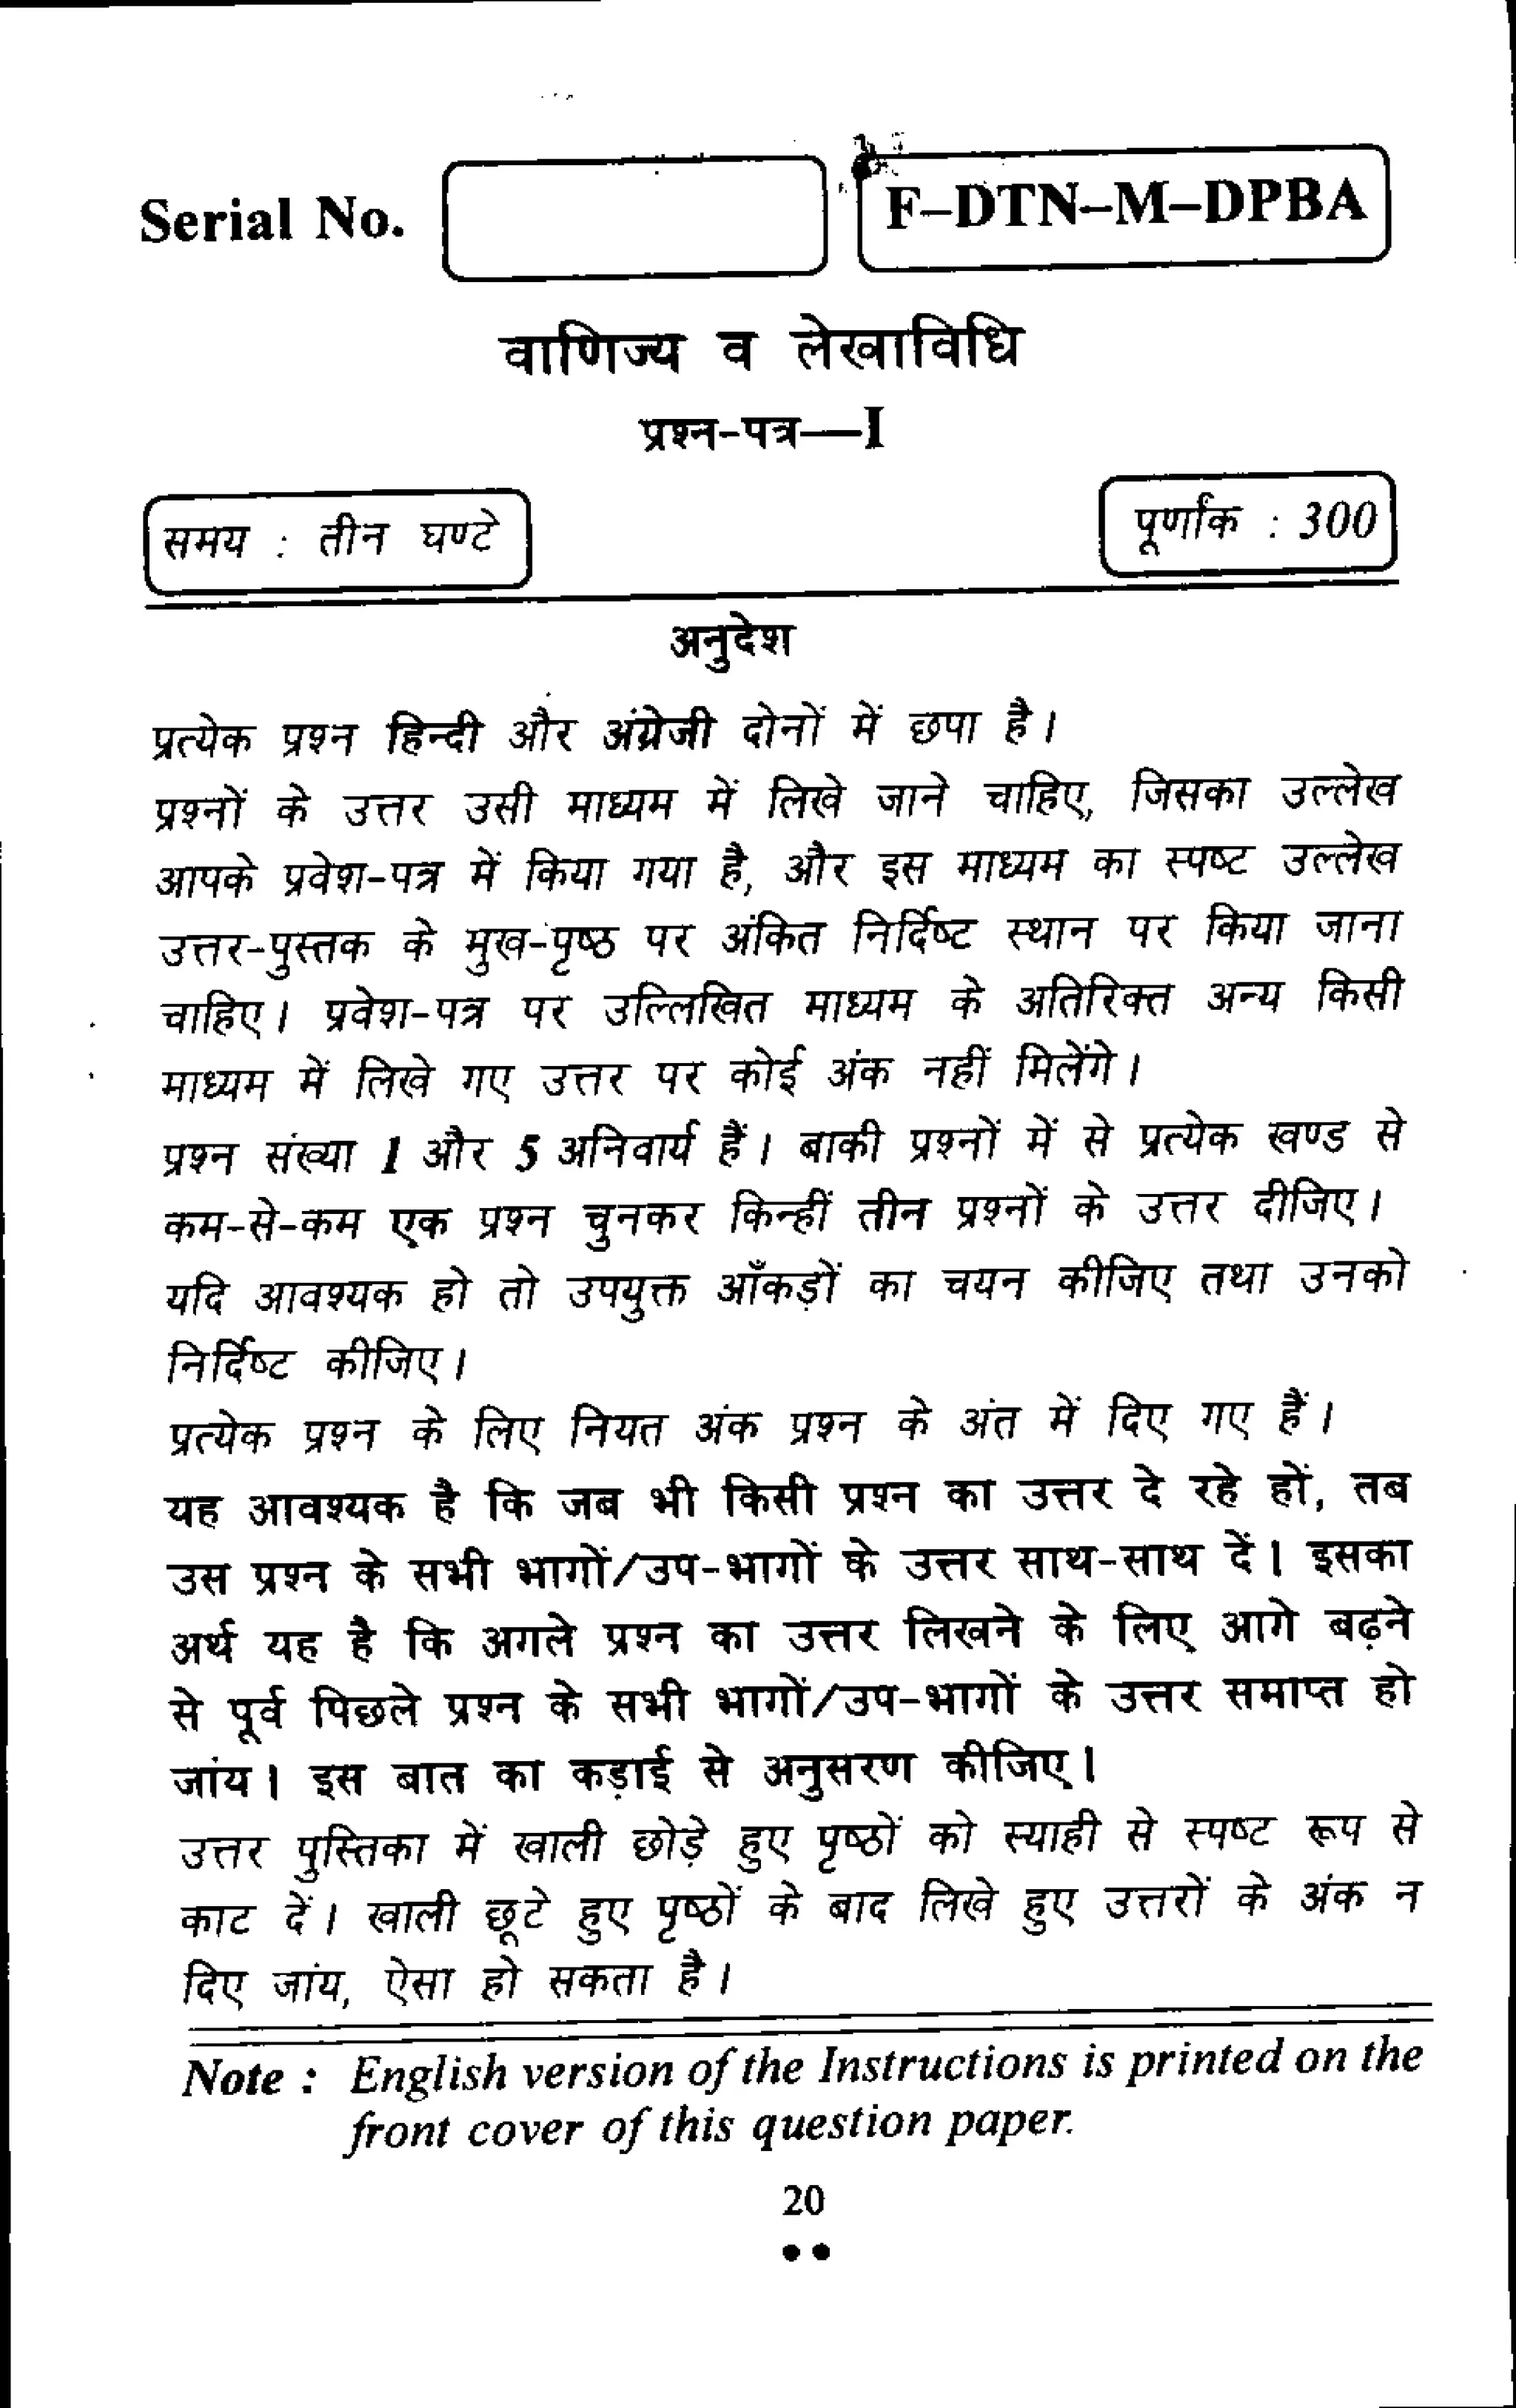 Serial No.
F–DTN–M–DPBA
वाणिज्य व लेखाविधि
प्रश्न-पत्र—I
समय : तीन घण्टे
पूर्णांक : 300
अनुदेश
प्रत्येक प्रश्न हिन्दी और अंग्रेजी दोनों में छपा है।
प्रश्नों के उत्तर उसी माध्यम में लिखे जाने चाहिए, जिसका उल्लेख
आपके प्रवेश-पत्र में किया गया है, और इस माध्यम का स्पष्ट उल्लेख
उत्तर-पुस्तक के मुख-पृष्ठ पर अंकित निर्दिष्ट स्थान पर किया जाना
चाहिए। प्रवेश-पत्र पर उल्लिखित माध्यम के अतिरिक्त अन्य किसी
माध्यम में लिखे गए उत्तर पर कोई अंक नहीं मिलेंगे।
प्रश्न संख्या 1 और 5 अनिवार्य हैं। बाकी प्रश्नों में से प्रत्येक खण्ड से
कम-से-कम एक प्रश्न चुनकर किन्हीं तीन प्रश्नों के उत्तर दीजिए।
यदि आवश्यक हो तो उपयुक्त आँकड़ों का चयन कीजिए तथा उनको
निर्दिष्ट कीजिए।
प्रत्येक प्रश्न के लिए नियत अंक प्रश्न के अंत में दिए गए हैं।
यह आवश्यक है कि जब भी किसी प्रश्न का उत्तर दे रहे हों, तब
उस प्रश्न के सभी भागों/उप-भागों के उत्तर साथ-साथ दें। इसका
अर्थ यह है कि अगले प्रश्न का उत्तर लिखने के लिए आगे बढ़ने
से पूर्व पिछले प्रश्न के सभी भागों/उप-भागों के उत्तर समाप्त हो
जांय। इस बात का कड़ाई से अनुसरण कीजिए।
उत्तर पुस्तिका में खाली छोड़े हुए पृष्ठों को स्याही से स्पष्ट रूप से
काट दें। खाली छूटे हुए पृष्ठों के बाद लिखे हुए उत्तरों के अंक न
दिए जांय, ऐसा हो सकता है।
Note : English version of the Instructions is printed on the
front cover of this question paper.
20